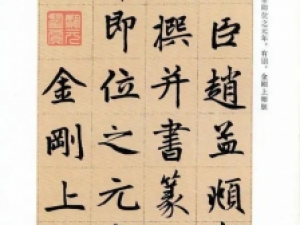 即位之元年，有詔，金剛上師膽
臣趙孟頫
撰并書篆
即位之元
金剛上